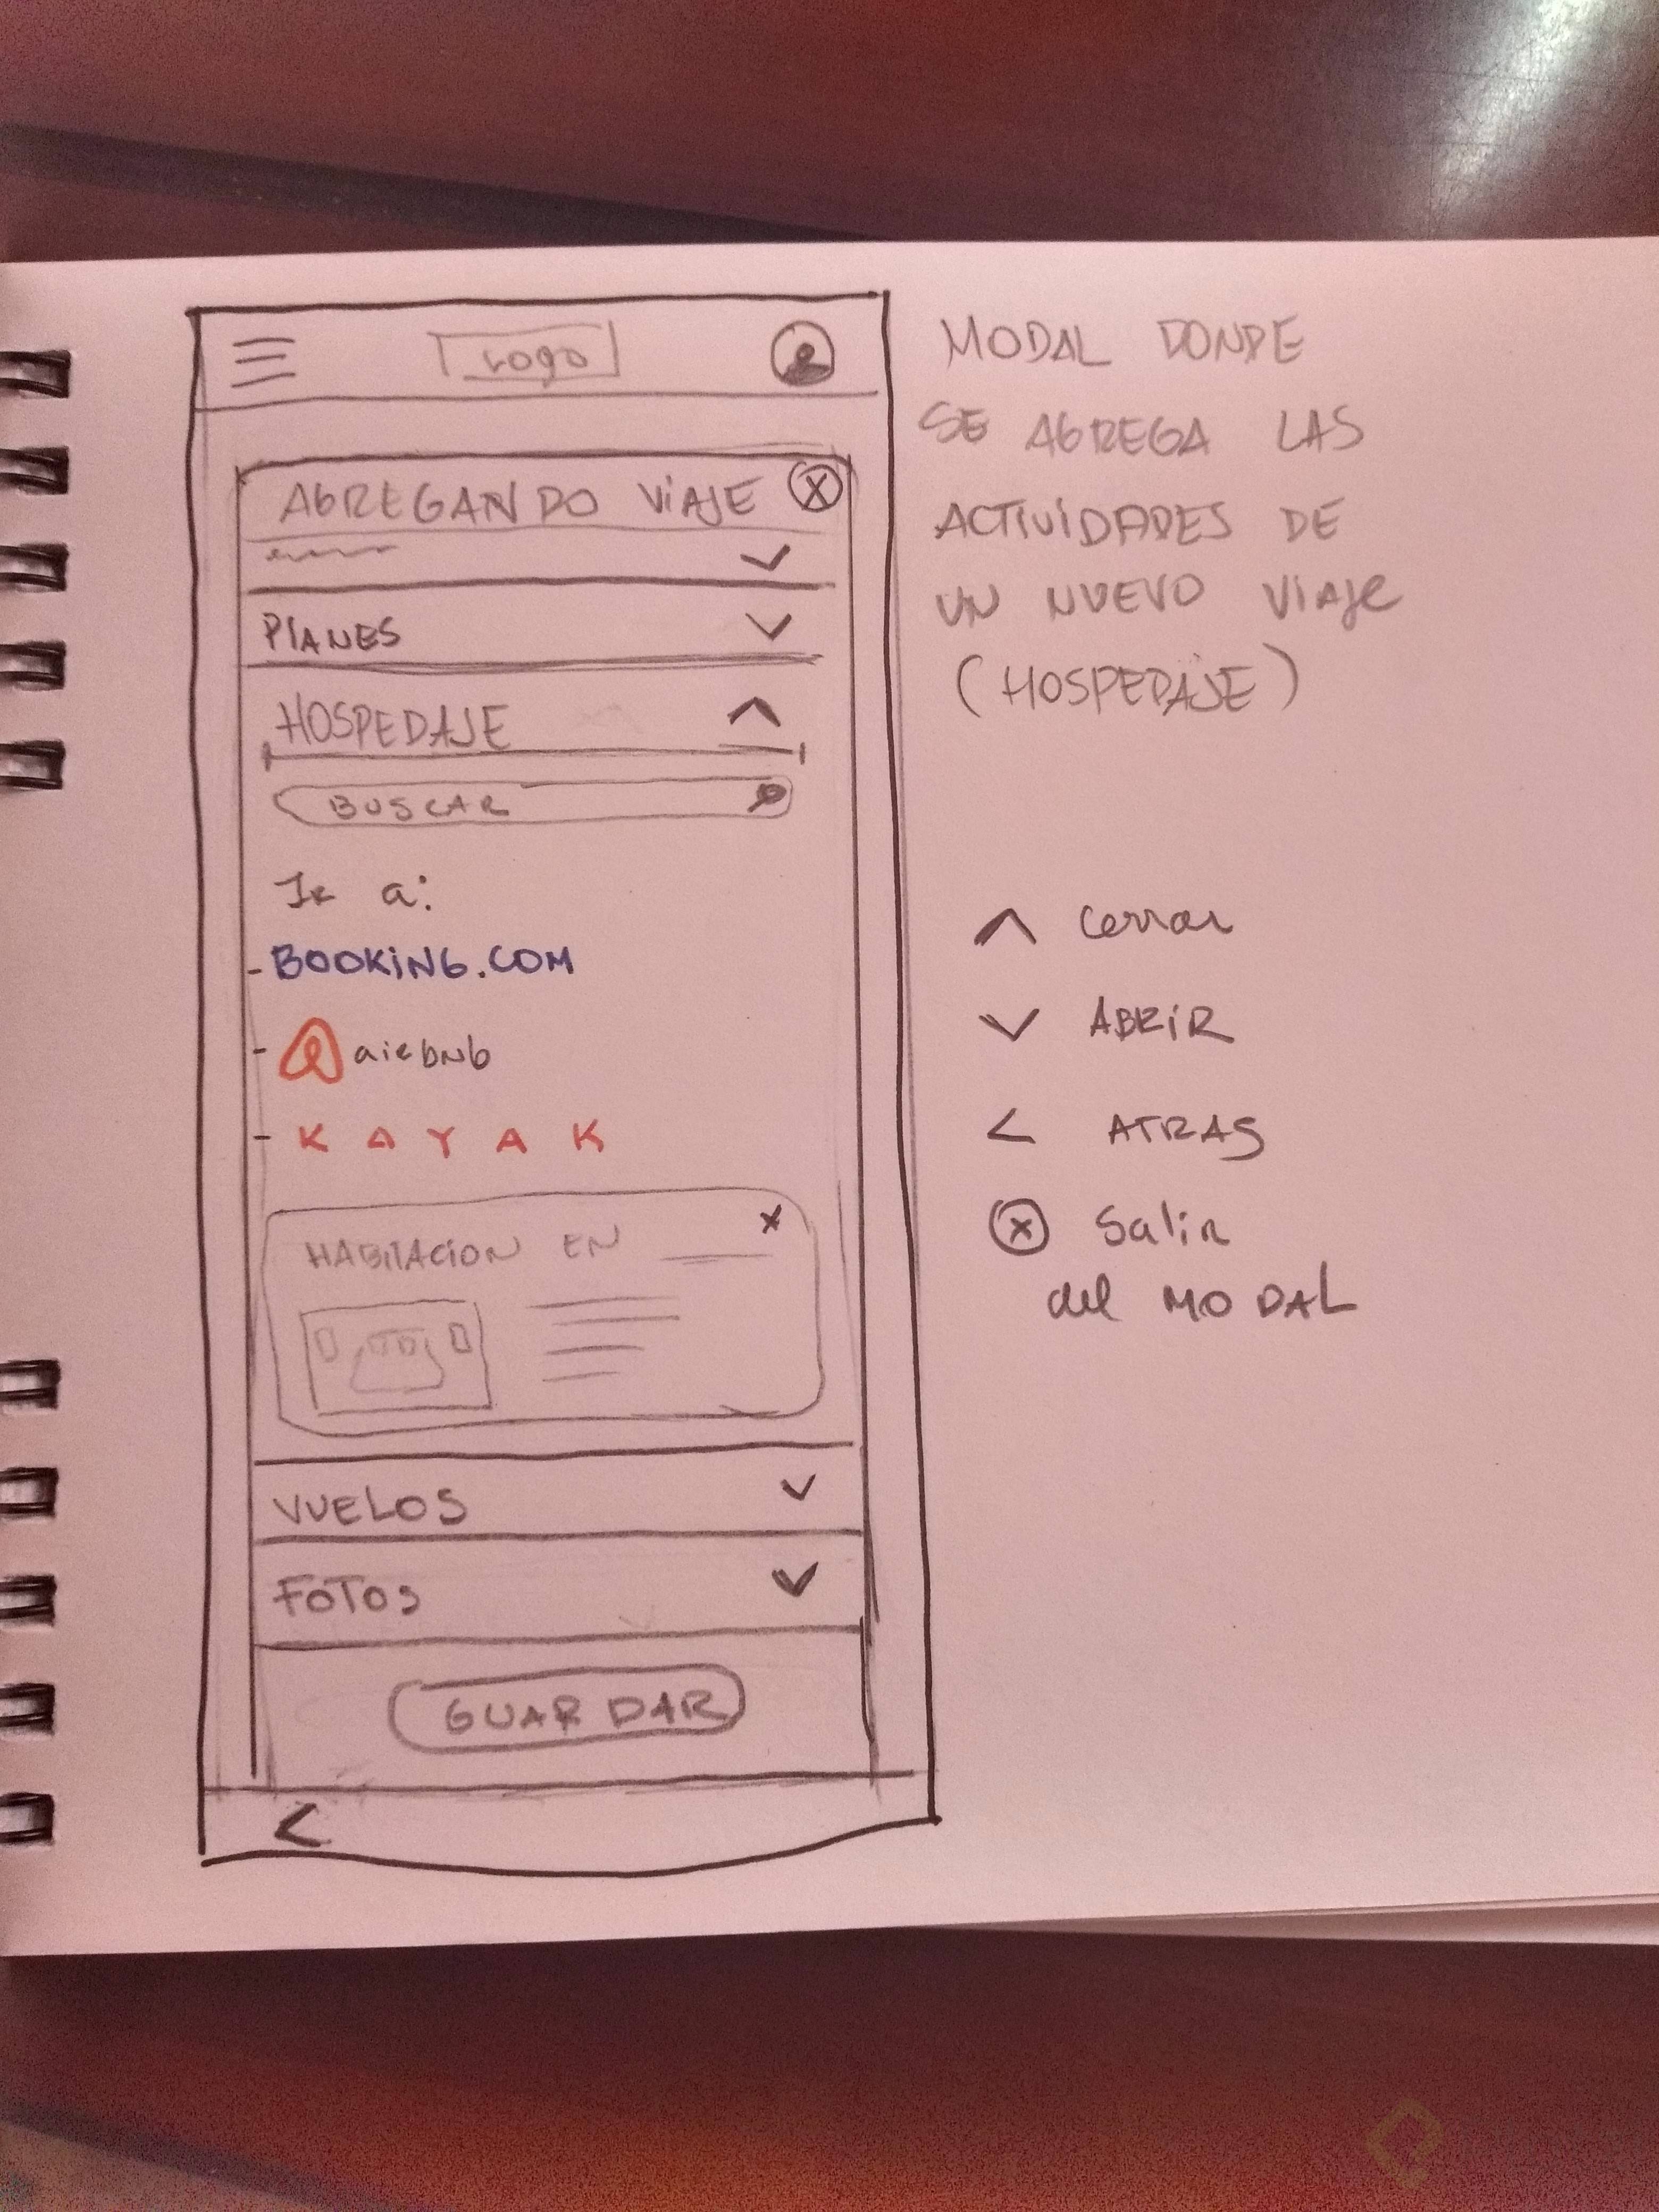 Logo
AGREGANDO VIAJE
PlANES
HOSPEDAJE
BUSCAR
Ir a:
- BOOKING.COM
- airbnb
- K A Y A K
HABITACION EN
VUELOS
FOTOS
GUARDAR
MODAL DONDE
SE AGREGA LAS
ACTIVIDADES DE
UN NUEVO VIAJE
(HOSPEDAJE)
cerrar
ABRIR
ATRAS
Salir
del MODAL